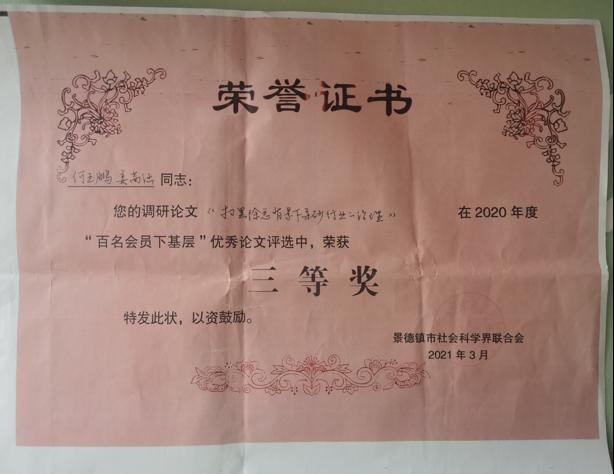 荣誉证书
同志：
您的调研论文《扫黑除恶背景下采砂行业》在2020年度
“百名会员下基层”优秀论文评选中，荣获
三等奖
特发此状，以资鼓励。
景德镇市社会科学界联合会
2021年3月